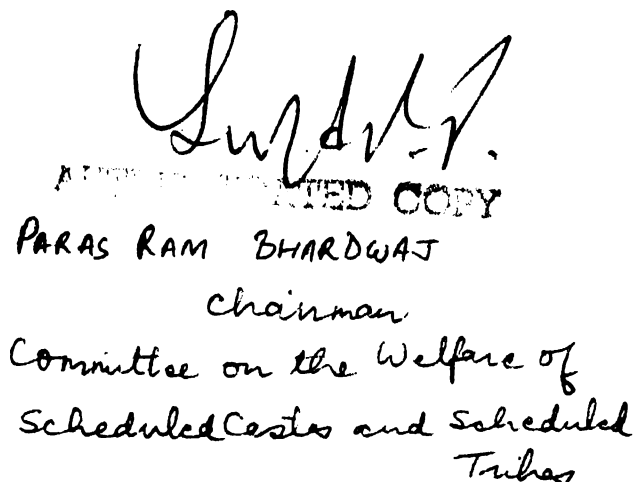 COPY
PARAS RAM BHARDWAJ
Chairman
Committee on the Welfare of
Scheduled Castes and Scheduled
Tribes